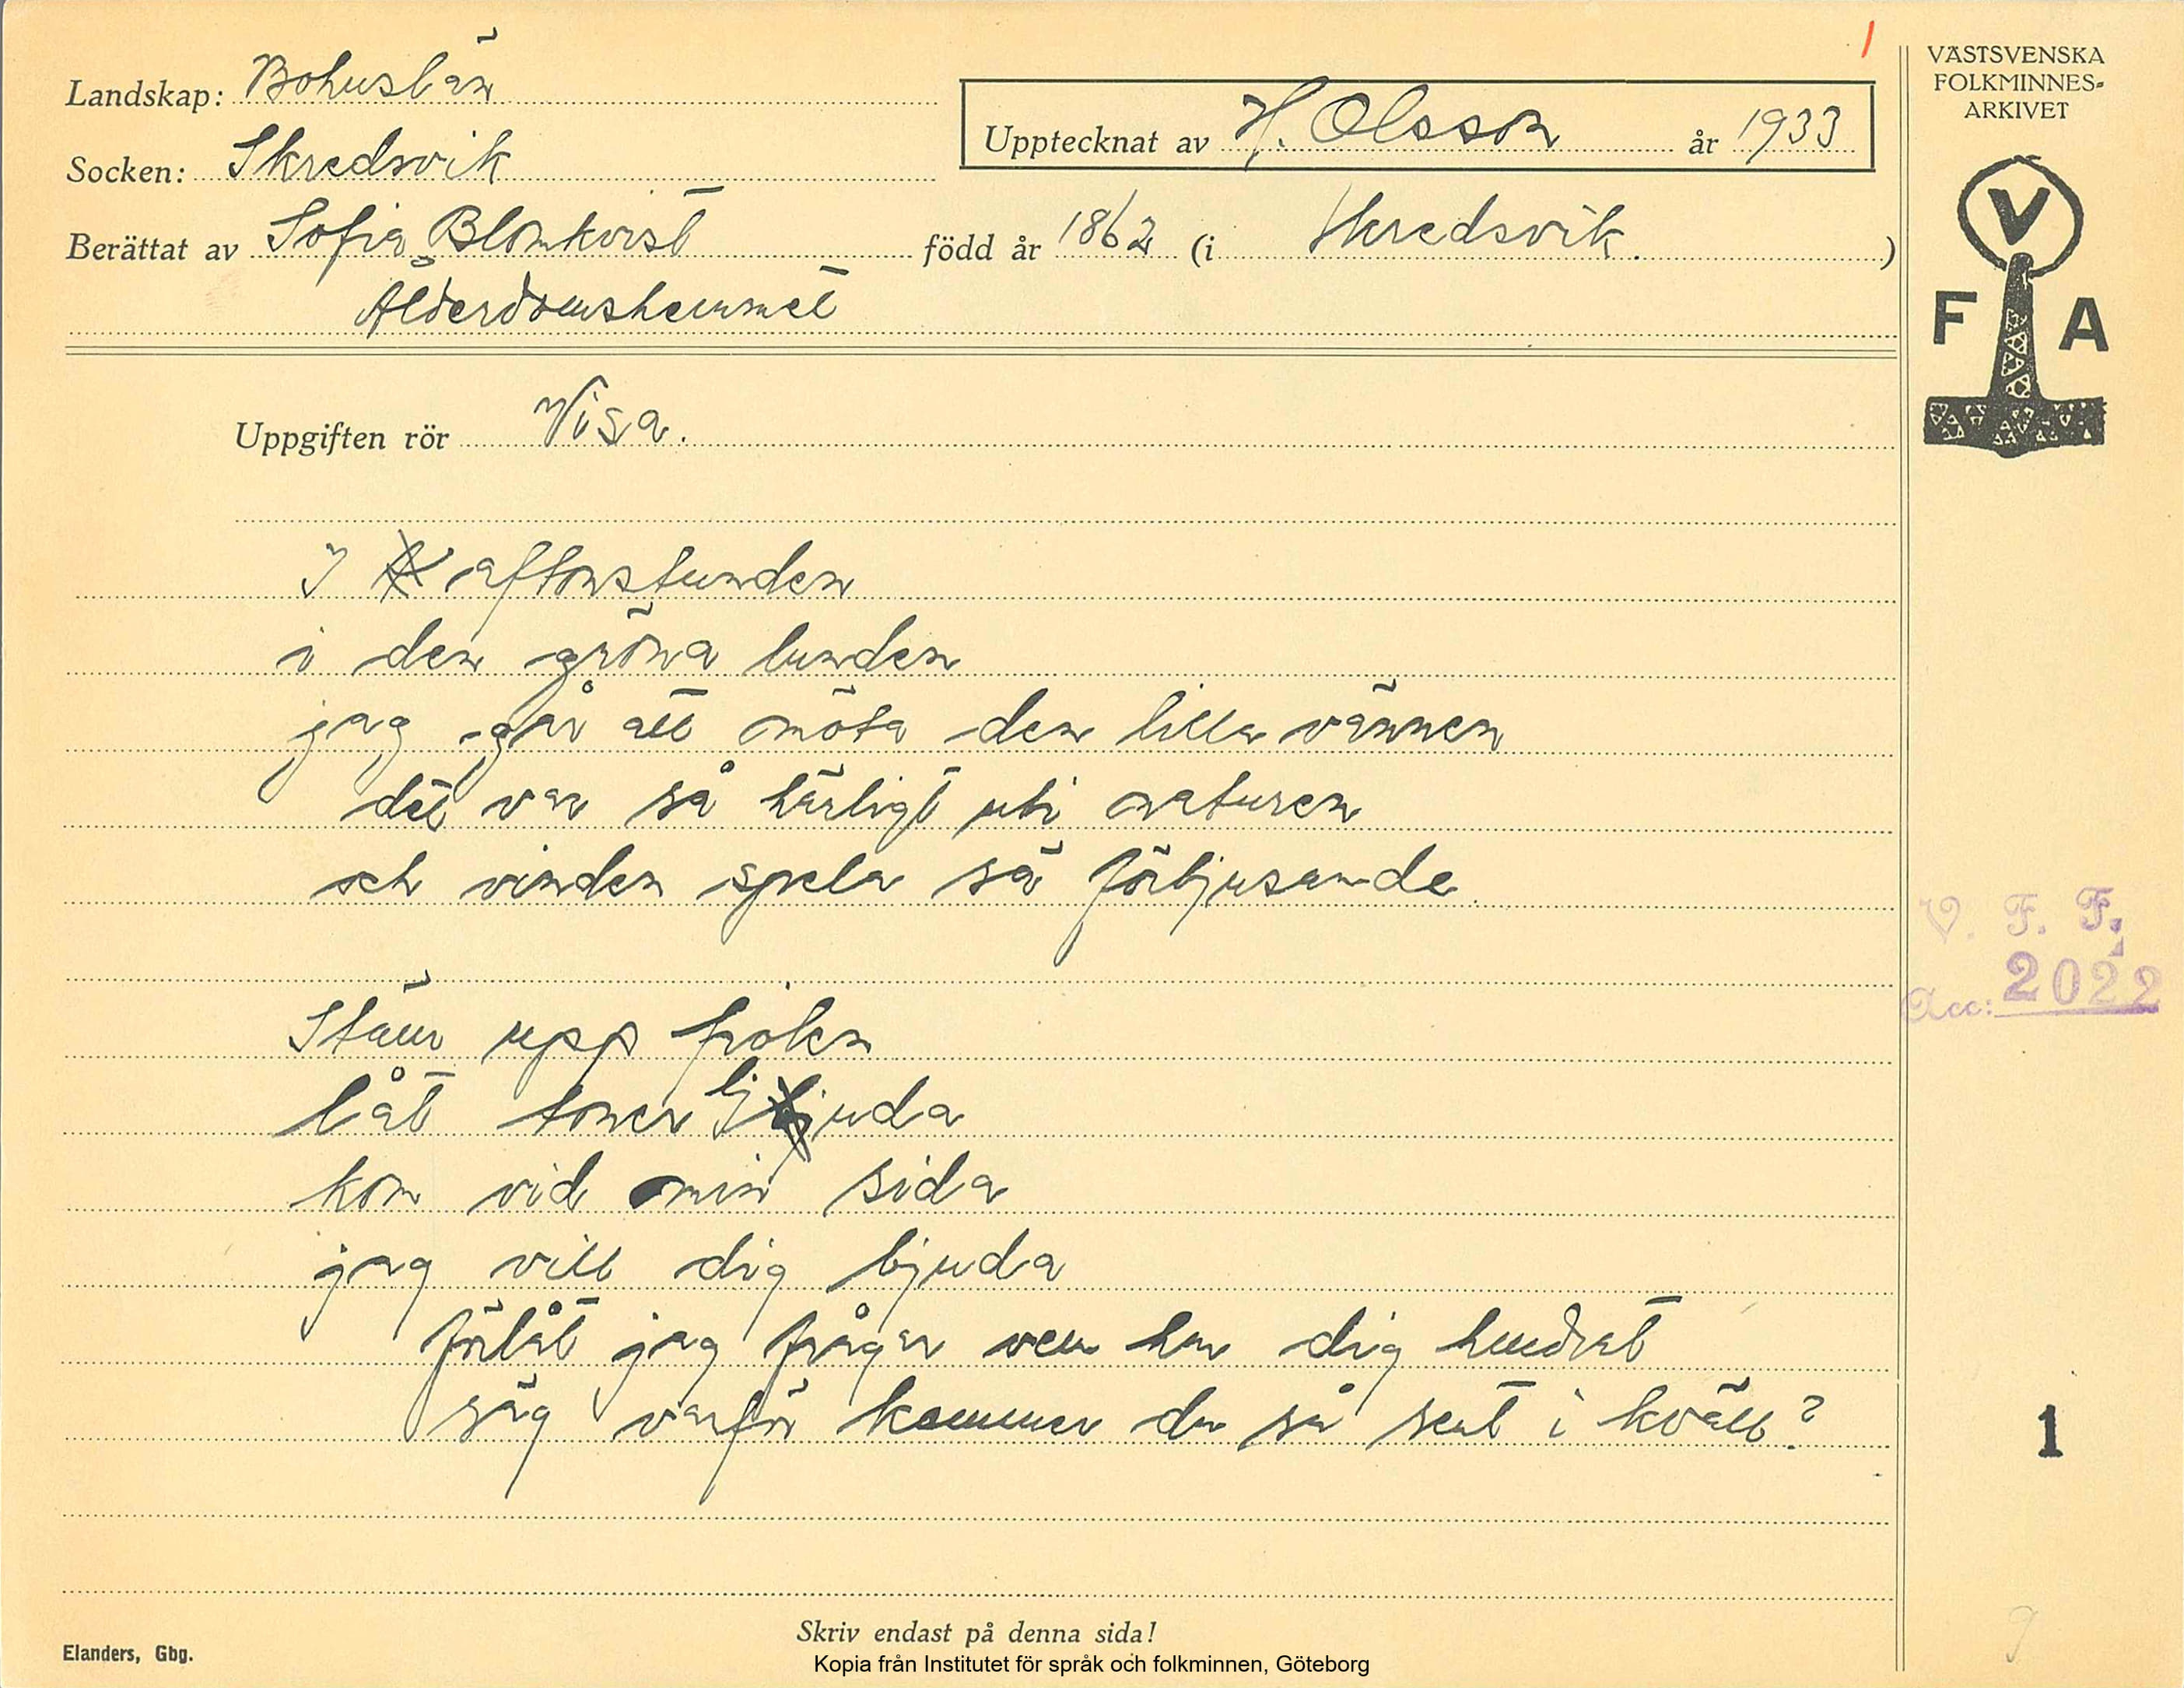 Landskap: Bohuslän
Socken: Skredsvik
Berättat av Sofia Blomkvist
Ålderdomshemmet
Upptecknat av H. Olsson år 1933
född år 1862 (i Skredsvik.)
Uppgiften rör Visa.
I aftonstunden
i den gröna lunden
jag går att möta den lilla vännen
det var så härligt uti naturen
och vinden spela så förtjusande.
Stäm upp fröken
låt toner ljuda
kom vid min sida
jag vill dig bjuda
förlåt jag frågar vem har dig hindrat
säg varför kommer du så sent i kväll?
Skriv endast på denna sida!
Elanders, Gbg.
Kopia från Institutet för språk och folkminnen, Göteborg
VÄSTSVENSKA
FOLKMINNES-
ARKIVET
V
F A
V. F. F.
Acc: 2022
1